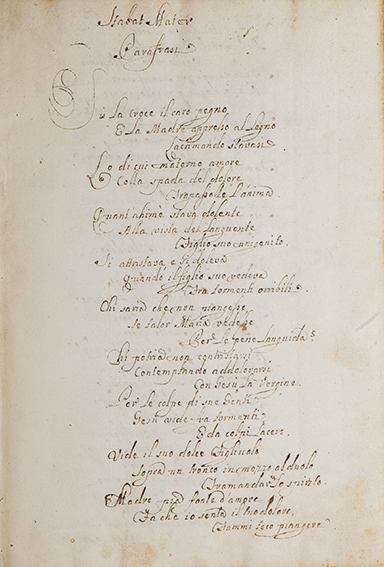 Stabat Mater
Parafrasi
Su la croce il caro pegno
E la Madre appresso al Legno
Lacrimando stavasi
Lo di cui materno amore
Colla spada del dolore
Trapassolle l'anima.
Quant'ahimè stava dolente
Alla vista del languente
Figlio suo unigenito.
Si attristava e si doleva
Quando il figlio suo vedeva
Tra tormenti orribili
Chi saria che non piangesse
Se talor Maria vedesse
Per le pene languida
Chi potria non contristarsi
Contemplando addolorarsi
Con Gesù la Vergine.
Per le colpe di sue Genti
Gesù vide tra tormenti
E da colpi lacero.
Vide il suo dolce Figliuolo
Sopra un tronco in mezzo al duolo
Tramandar lo spirito.
Madre pia fonte d'amore
Fa che io senta il tuo dolore
Fammi teco piangere